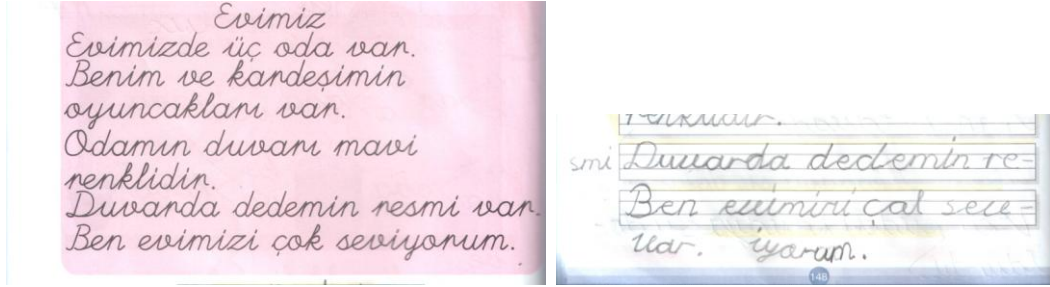 Evimiz
Evimizde üç oda var.
Benim ve kardeşimin
oyuncakları var.
Odamın duvarı mavi
renklidir.
Duvarda dedemin resmi var.
Ben evimizi çok seviyorum.
renklidir.
smi Duuarda dedemin re-
Ben euimiri çal sece-
uar. iyorum.
148